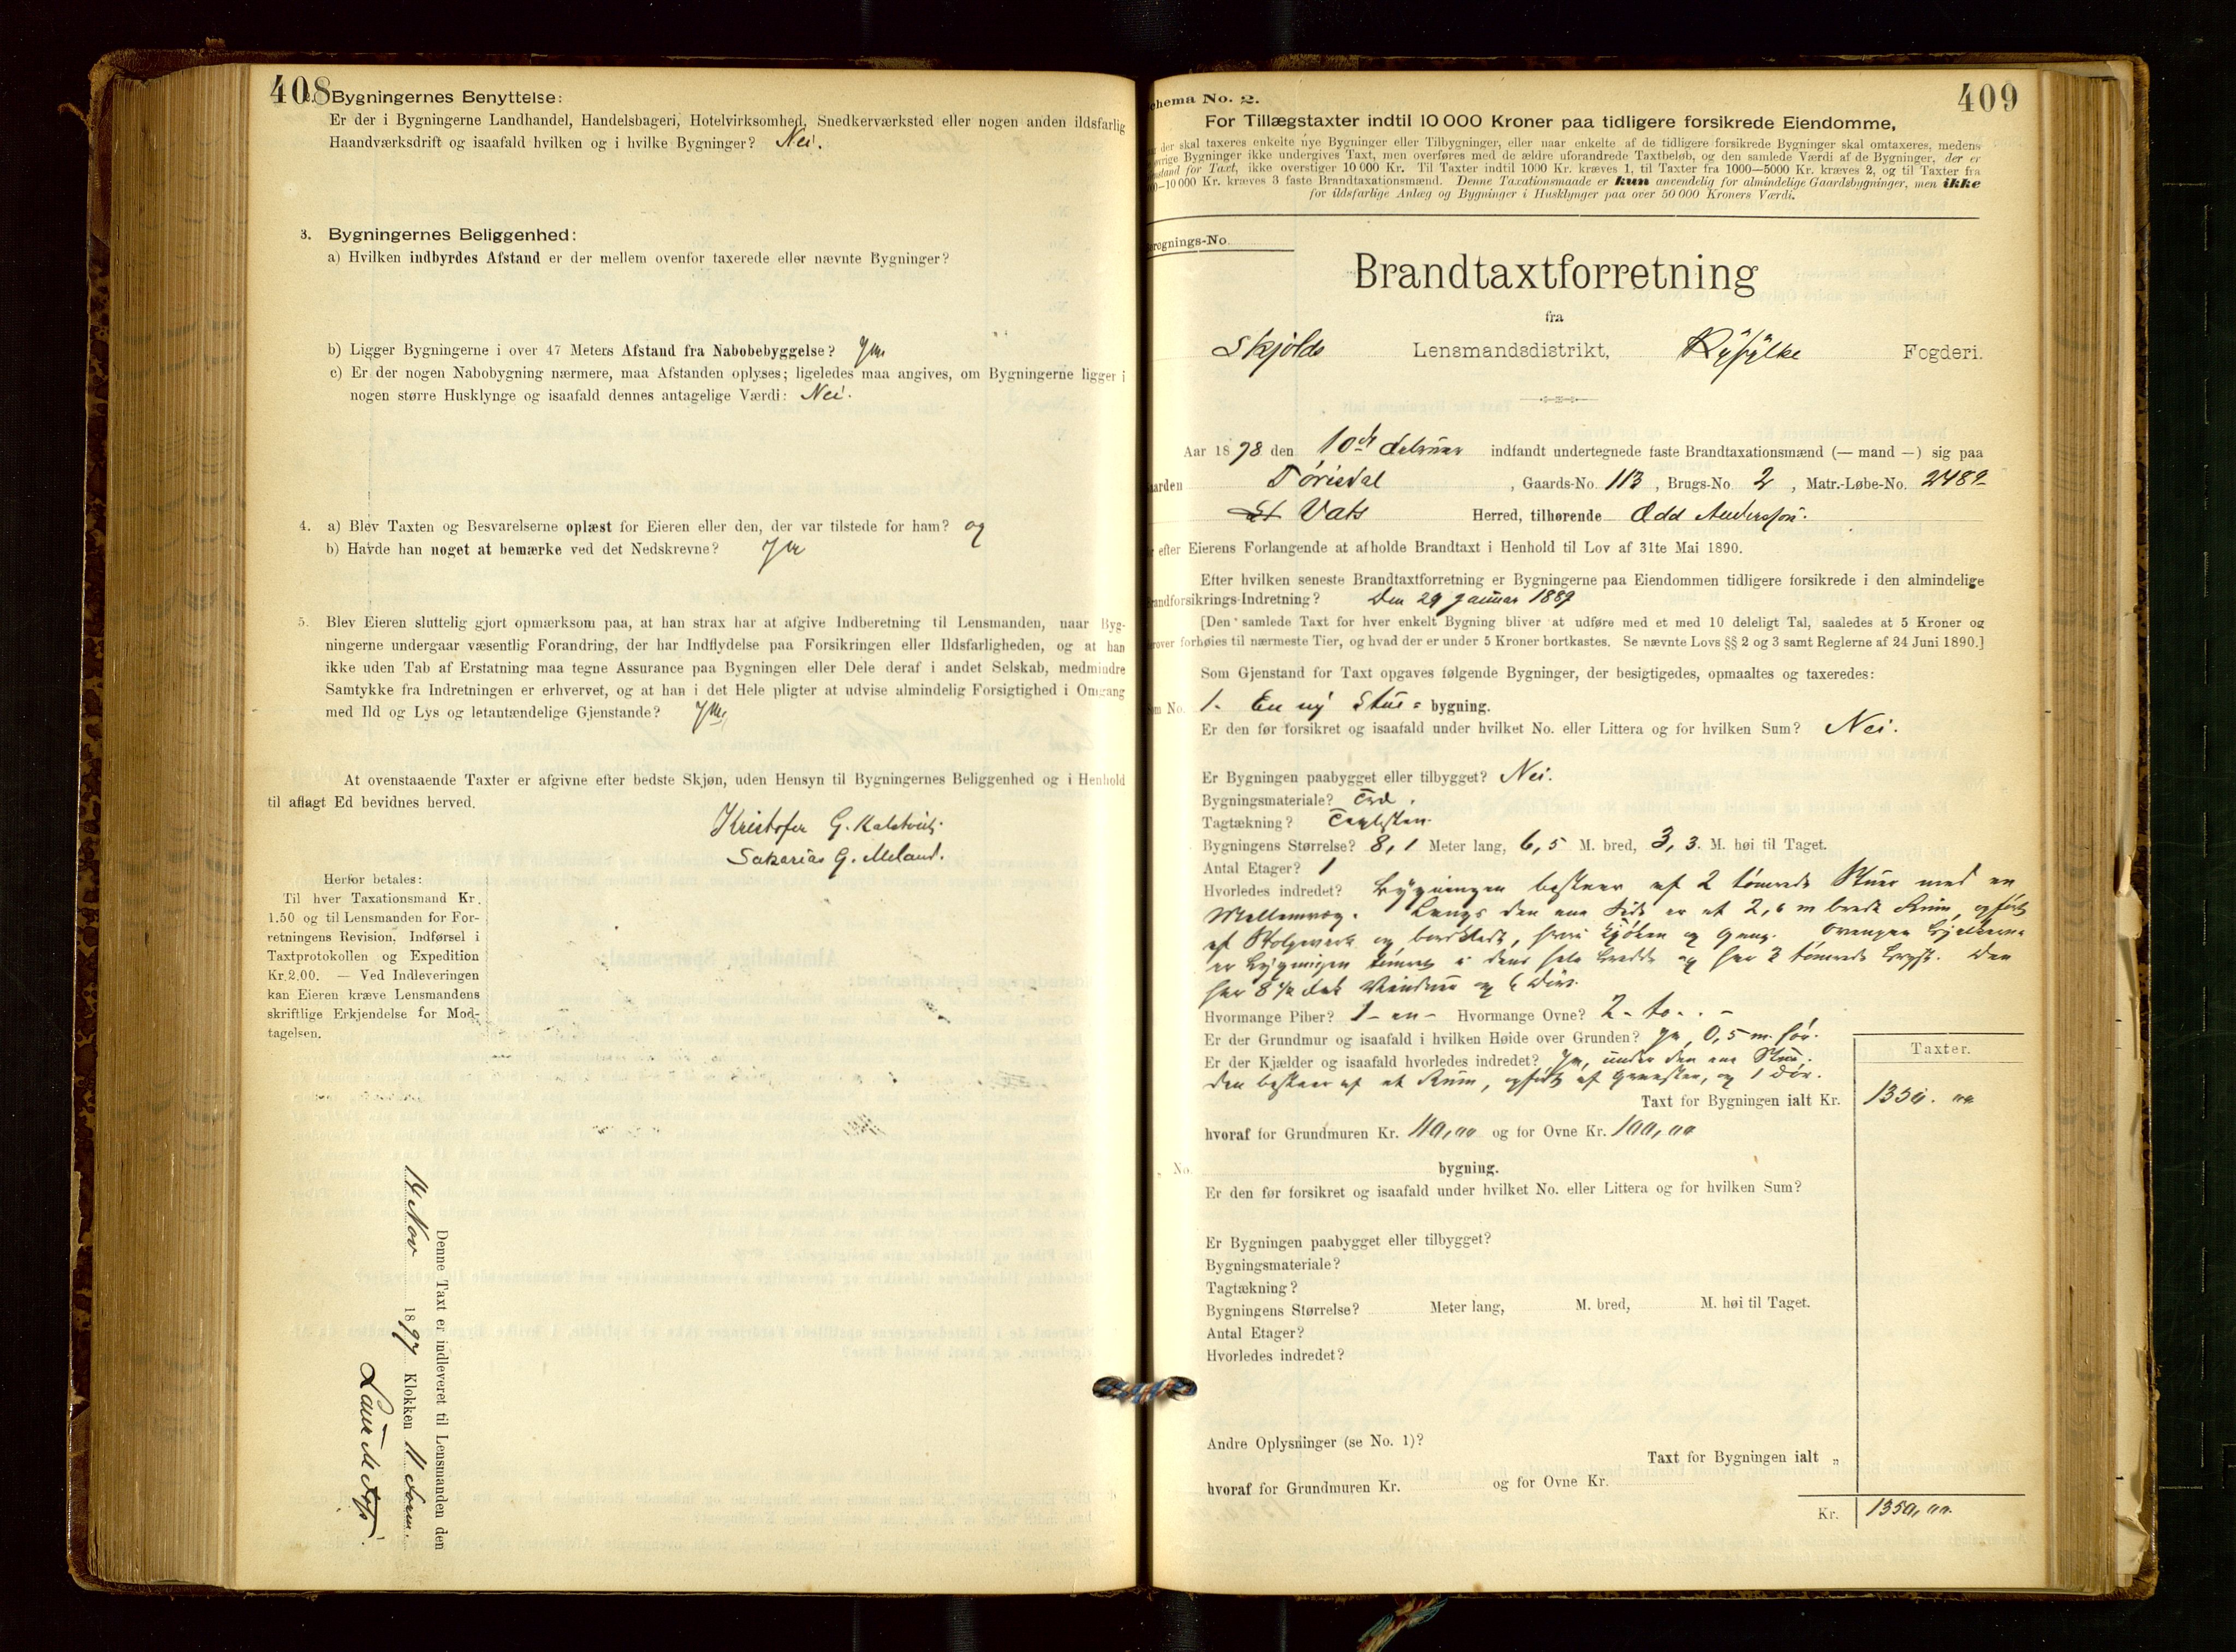 408
2. Bygningernes Benyttelse:
Er der i Bygningerne Landhandel, Handelsbageri, Hotelvirksomhed, Snedkerværksted eller nogen anden ildsfarlig
Haandværksdrift og isaafald hvilken og i hvilke Bygninger? Nei.
3. Bygningernes Beliggenhed:
a) Hvilken indbyrdes Afstand er der mellem ovenfor taxerede eller nævnte Bygninger?
b) Ligger Bygningerne i over 47 Meters Afstand fra Nabobebyggelse? Ja
c) Er der nogen Nabobygning nærmere, maa Afstanden oplyses; ligeledes maa angives, om Bygningerne ligger i
nogen større Husklynge og isaafald dennes antagelige Værdi: Nei.
4. a) Blev Taxten og Besvarelserne oplæst for Eieren eller den, der var tilstede for ham? og
b) Havde han noget at bemærke ved det Nedskrevne? Ja
5. Blev Eieren sluttelig gjort opmærksom paa, at han strax har at afgive Indberetning til Lensmanden, naar Byg-
ningerne undergaar væsentlig Forandring, der har Indflydelse paa Forsikringen eller Ildsfarligheden, og at han
ikke uden Tab af Erstatning maa tegne Assurance paa Bygningen eller Dele deraf i andet Selskab, medmindre
Samtykke fra Indretningen er erhvervet, og at han i det Hele pligter at udvise almindelig Forsigtighed i Omgang
med Ild og Lys og letantændelige Gjenstande? Ja
At ovenstaaende Taxter er afgivne efter bedste Skjøn, uden Hensyn til Bygningernes Beliggenhed og i Henhold
til aflagt Ed bevidnes herved.
Kristofer G. Kalstveit.
Sakarias G. Meland.
Herfor betales:
Til hver Taxationsmand Kr.
1.50 og til Lensmanden for For-
retningens Revision, Indførsel i
Taxtprotokollen og Expedition
Kr.2.00. — Ved Indleveringen
kan Eieren kræve Lensmandens
skriftlige Erkjendelse for Mod-
tagelsen.
Denne Taxt er indleveret til Lensmanden den
14 Nov 1897 Klokken 11 Form.
409
Schema No. 2.
For Tillægstaxter indtil 10 000 Kroner paa tidligere forsikrede Eiendomme,
der skal taxeres enkelte nye Bygninger eller Tilbygninger, eller naar enkelte af de tidligere forsikrede Bygninger skal omtaxeres, medens
øvrige Bygninger ikke undergives Taxt, men overføres med de ældre uforandrede Taxtbeløb, og den samlede Værdi af de Bygninger, der er
Gjenstand for Taxt, ikke overstiger 10 000 Kr. Til Taxter indtil 1000 Kr. kræves 1, til Taxter fra 1000—5000 Kr. kræves 2, og til Taxter fra
5000—10 000 Kr. kræves 3 faste Brandtaxationsmænd. Denne Taxationsmaade er kun anvendelig for almindelige Gaardsbygninger, men ikke
for ildsfarlige Anlæg og Bygninger i Husklynger paa over 50 000 Kroners Værdi.
Brandtaxtforretning
fra
Skjolds Lensmandsdistrikt, Ryfylke Fogderi.
Aar 1898 den 10de Februar indfandt undertegnede faste Brandtaxationsmænd (— mand —) sig paa
Gaarden Tørisdal, Gaards-No. 113, Brugs-No. 2, Matr.-Løbe-No. 248
Vats Herred, tilhørende Odd Anderssen.
efter Eierens Forlangende at afholde Brandtaxt i Henhold til Lov af 31te Mai 1890.
Efter hvilken seneste Brandtaxtforretning er Bygningerne paa Eiendommen tidligere forsikrede i den almindelige
Brandforsikrings-Indretning? Den 29 Januar 1889
[Den samlede Taxt for hver enkelt Bygning bliver at udføre med et med 10 deleligt Tal, saaledes at 5 Kroner og
derover forhøies til nærmeste Tier, og hvad der er under 5 Kroner bortkastes. Se nævnte Lovs §§ 2 og 3 samt Reglerne af 24 Juni 1890.]
Som Gjenstand for Taxt opgaves følgende Bygninger, der besigtigedes, opmaaltes og taxeredes:
Som No. 1. En ny Stue-bygning.
Er den før forsikret og isaafald under hvilket No. eller Littera og for hvilken Sum? Nei.
Er Bygningen paabygget eller tilbygget? Nei.
Bygningsmateriale? Træ.
Tagtækning? Taglsten.
Bygningens Størrelse? 8,1 Meter lang, 6,5 M. bred, 3,3. M. høi til Taget.
Antal Etager? 1
Hvorledes indredet? Bygningen bestaar af 2 tømrede Stuer med en
Mellemvæg. Langs den ene Side er et 2,6 m bredt Rum, opført
af Stolpeværk og bordklædt, hvori Kjøken og Gang. Ovenpaa Bjelkerne
er Bygningen tømret i dens hele Bredde og har 2 tømrede Bryst. Den
har 8 4/2 dels Vinduer og 6 Døre.
Hvormange Piber? 1 - en - Hvormange Ovne? 2 - to. . -
Er der Grundmur og isaafald i hvilken Høide over Grunden? Ja, 0,5 m. høi.
Er der Kjælder og isaafald hvorledes indredet? Ja, under den ene Stue.
den bestaar af et Rum, opført af Graasten, og 1 Dør.
Taxter.
Taxt for Bygningen ialt Kr. 1350. 00
hvoraf for Grundmuren Kr. 40,00 og for Ovne Kr. 100,00
No. bygning.
Er den før forsikret og isaafald under hvilket No. eller Littera og for hvilken Sum?
Er Bygningen paabygget eller tilbygget?
Bygningsmateriale?
Tagtækning?
Bygningens Størrelse? Meter lang, M. bred, M. høi til Taget.
Antal Etager?
Hvorledes indredet?
Andre Oplysninger (se No. 1)?
Taxt for Bygningen ialt „
hvoraf for Grundmuren Kr. og for Ovne Kr.
Kr. 1350,00.